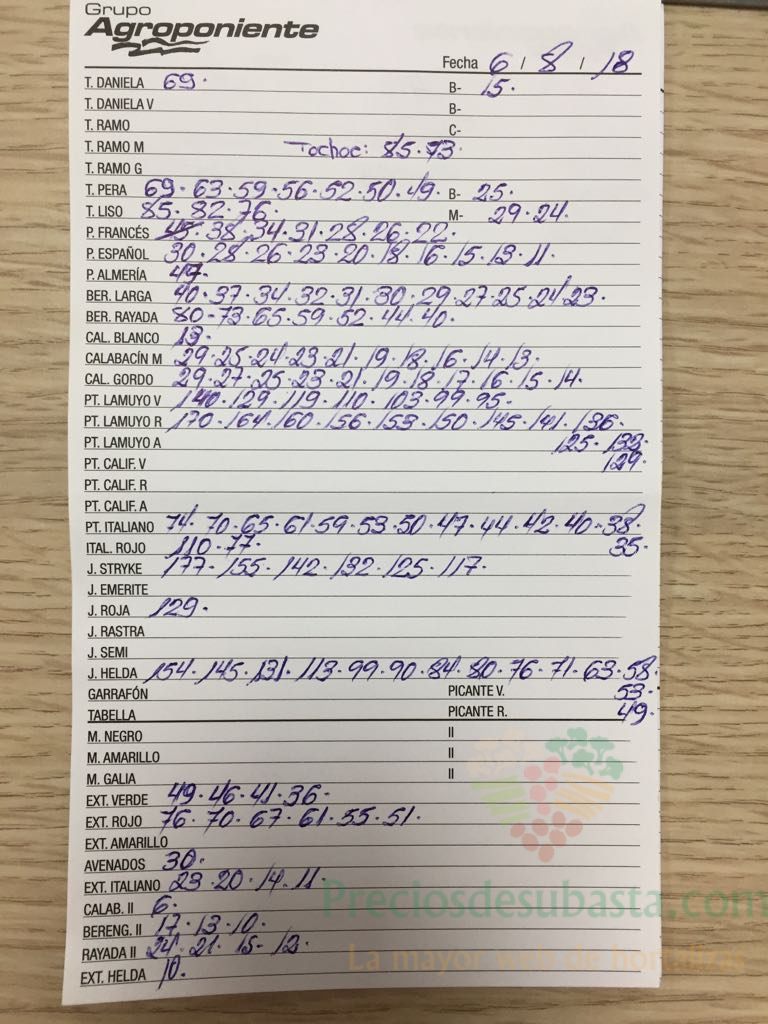 Grupo
Agroponiente
Fecha 6 / 8 / 18
T. DANIELA 69. B- 15.
T. DANIELA V B-
T. RAMO C-
T. RAMO M Tochoc: 85.73.
T. RAMO G
T. PERA 69.63.59.56.52.50.49. B- 25.
T. LISO 85.82.76. M- 29.24.
P. FRANCÉS 45.38.34.31.28.26.22.
P. ESPAÑOL 30.28.26.23.20.18.16.15.13.11.
P. ALMERÍA 49.
BER. LARGA 40.37.34.32.31.30.29.27.25.24.23.
BER. RAYADA 80.73.65.59.52.44.40.
CAL. BLANCO 13.
CALABACÍN M 29.25.24.23.21.19.18.16.14.13.
CAL. GORDO 29.27.25.23.21.19.18.17.16.15.14.
PT. LAMUYO V 140.129.119.110.103.99.95.
PT. LAMUYO R 170.164.160.156.153.150.145.141.136.
PT. LAMUYO A 125.132.
PT. CALIF. V 129.
PT. CALIF. R
PT. CALIF. A
PT. ITALIANO 74.70.65.61.59.53.50.47.44.42.40.38.
ITAL. ROJO 110.77. 35.
J. STRYKE 177.155.142.132.125.117.
J. EMERITE
J. ROJA 129.
J. RASTRA
J. SEMI
J. HELDA 154.145.131.113.99.90.84.80.76.71.63.58.
GARRAFÓN PICANTE V. 53.
TABELLA PICANTE R. 49.
M. NEGRO II
M. AMARILLO II
M. GALIA II
EXT. VERDE 49.46.41.36.
EXT. ROJO 76.70.67.61.55.51.
EXT. AMARILLO
AVENADOS 30.
EXT. ITALIANO 23.20.14.11.
CALAB. II 6.
BERENG. II 17.13.10.
RAYADA II 24.21.15.12.
EXT. HELDA 10.
Preciosdesubasta.com
La mayor web de hortalizas